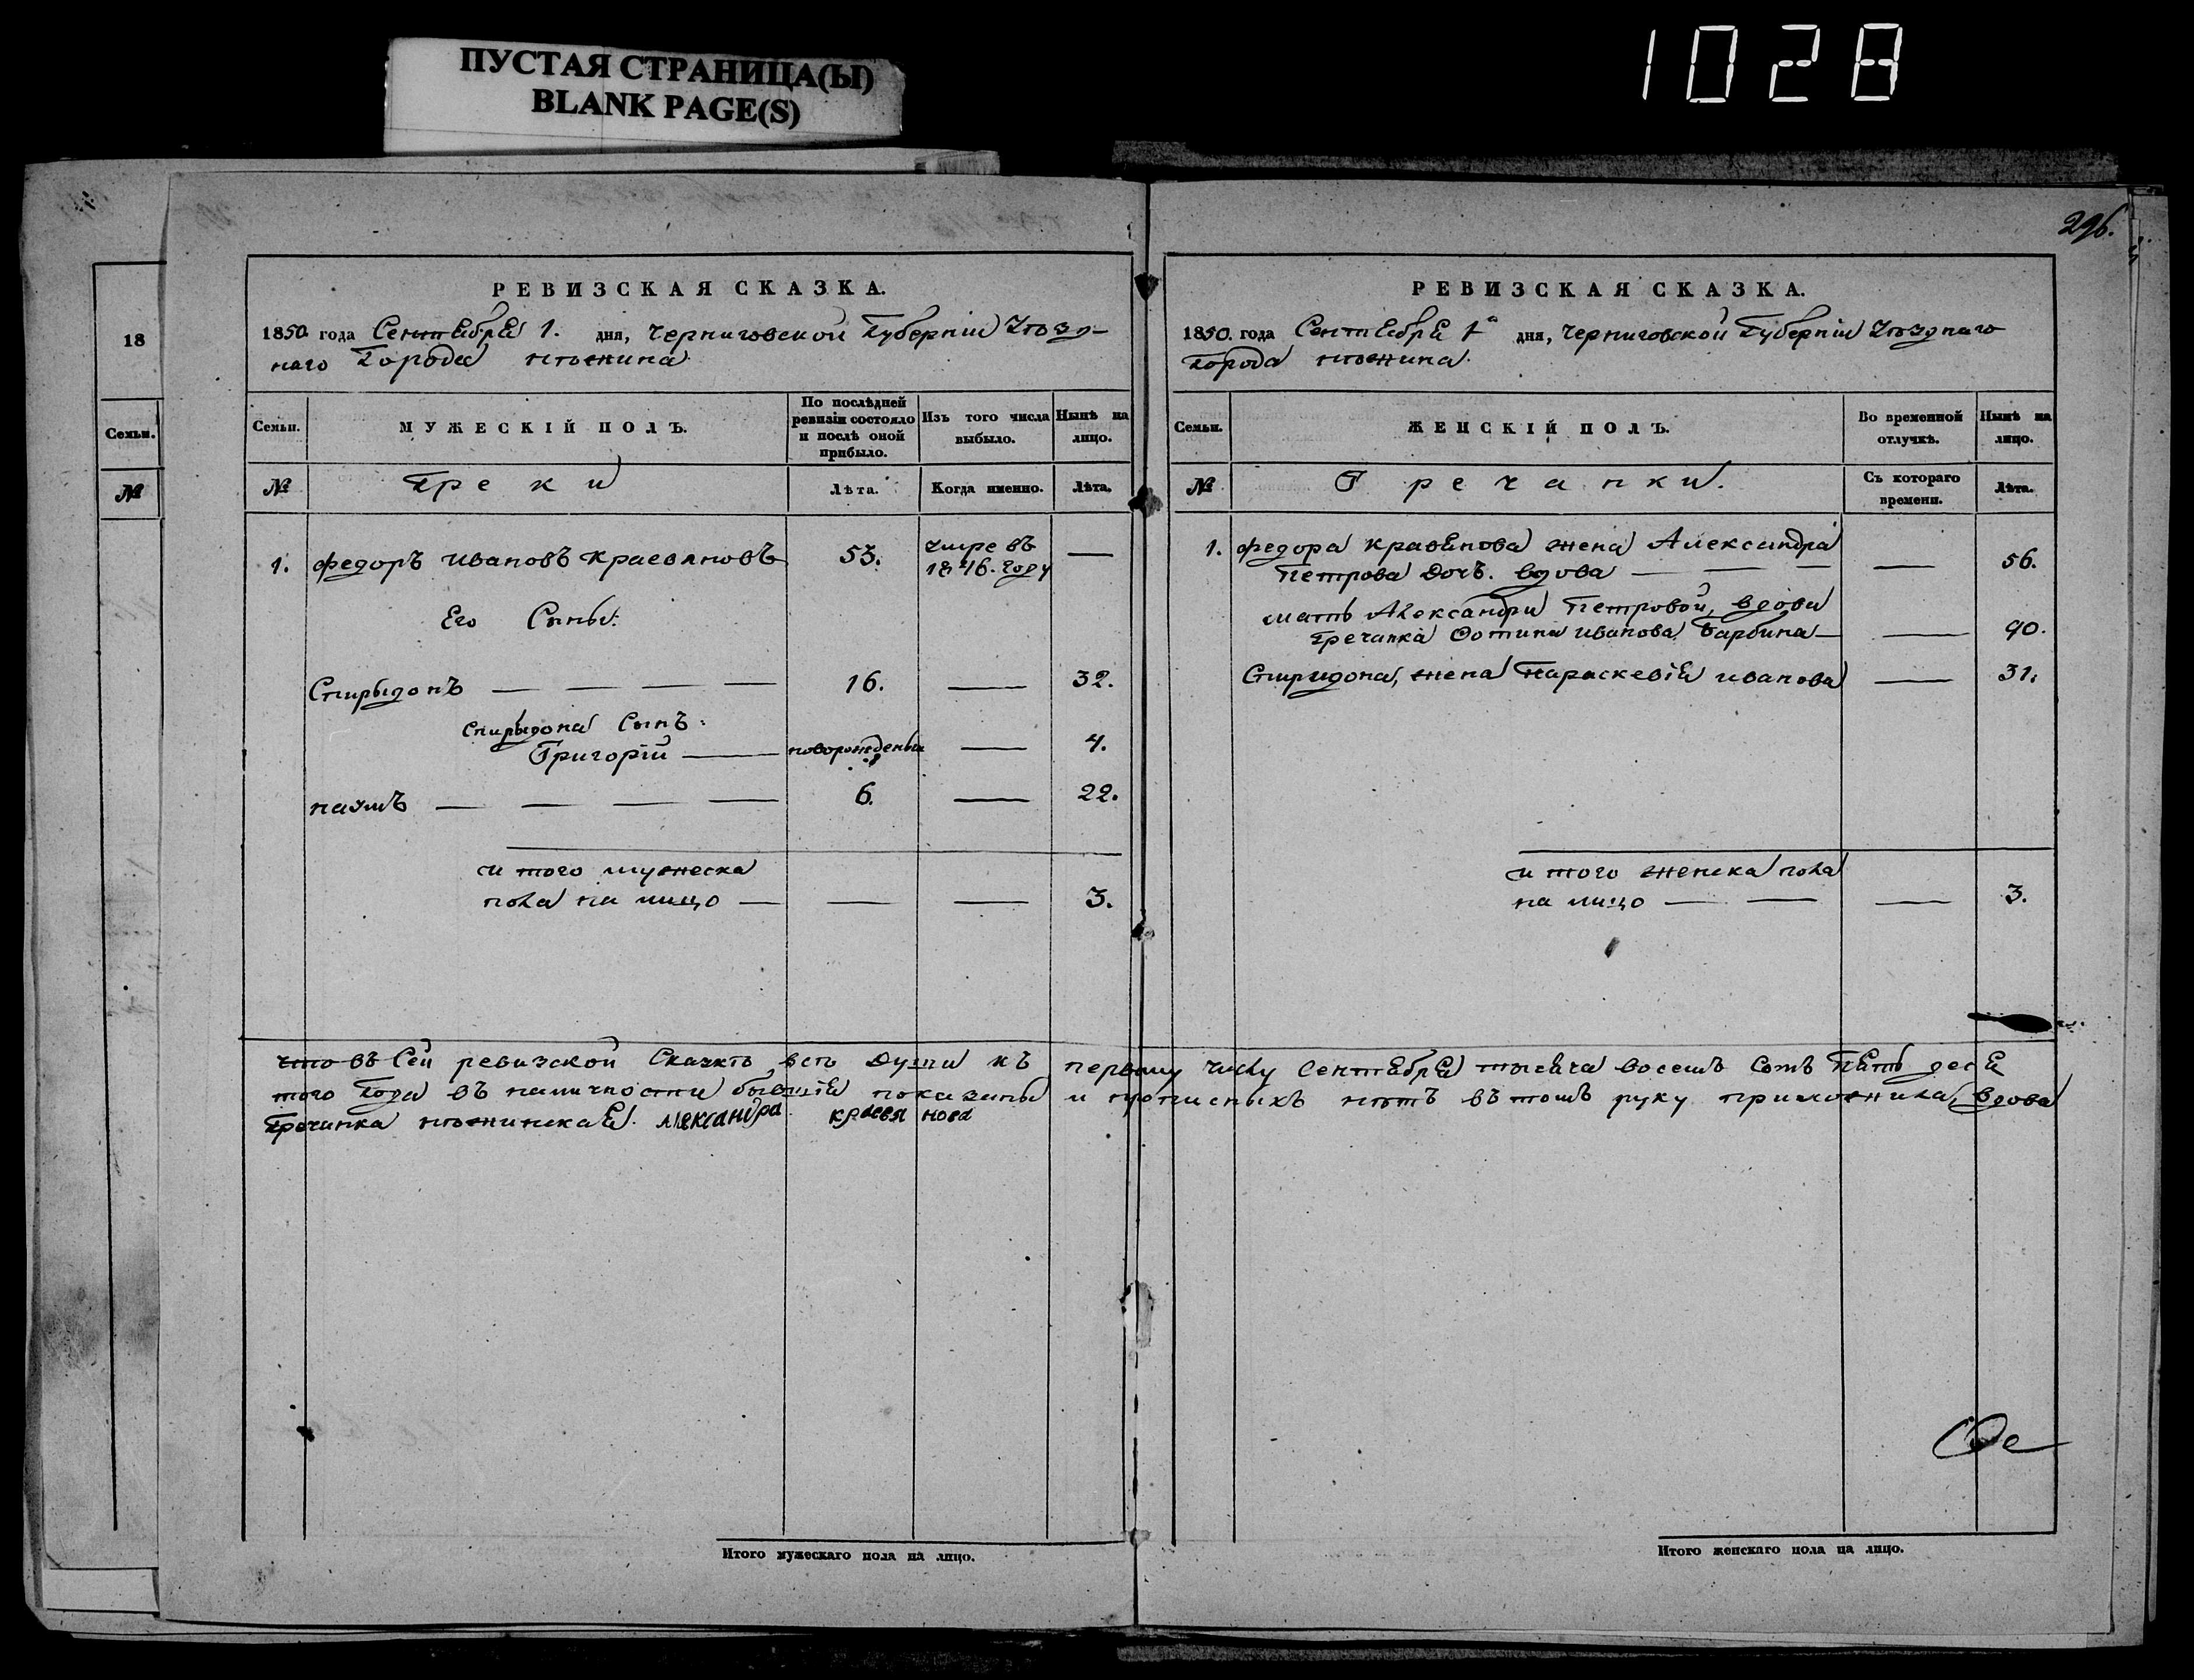 ПУСТАЯ СТРАНИЦА(Ы)
BLANK PAGE(S)
1028
296.
18
Семьи.
№
РЕВИЗСКАЯ СКАЗКА.
1850 года Сентября 1. дня, Черниговской Губерніи Уѣзд-
наго Города Нѣжина
Семьи.
МУЖЕСКІЙ ПОЛЪ.
По послѣдней ревизіи состояло и послѣ оной прибыло.
Изъ того числа выбыло.
Нынѣ на лицо.
№
Греки
Лѣта.
Когда именно.
Лѣта.
1. Федоръ Ивановъ Краевановъ 53. умре въ 1846. году —
Его Сыны:
Спирыдонъ — — — — 16. — 32.
Спирыдона Сынъ:
Григорій — новорожденый — 4.
Наумъ — — — — 6. — 22.
и того мужеска
пола на лицо — — — 3.
Итого мужескаго пола на лицо.
РЕВИЗСКАЯ СКАЗКА.
1850. года Сентября 1 дня, Черниговской Губерніи Уѣзднаго
Города Нѣжина.
Семьи.
ЖЕНСКІЙ ПОЛЪ.
Во временной отлучкѣ.
Нынѣ на лицо.
№
Гречанки.
Съ котораго времени.
Лѣта.
1. Федора Кравянова жена Александра
Петрова Дочь. вдова — — — — 56.
мать Александри Петровой, вдова
Гречанка Фотина Иванова Барбина — — 90.
Спиридона, жена Параскевія Иванова — 31.
и того женска пола
на лицо — — — 3.
что въ Сей ревизской Сказкѣ всѣ Души къ первому числу Сентября тысяча восемъ Сотъ Пять деся
того Года въ наличности бывшія показаны и прописныхъ нѣтъ въ томъ руку приложила, вдова
Гречанка нѣжинская. Александра краевянова
Итого женскаго пола на лицо.